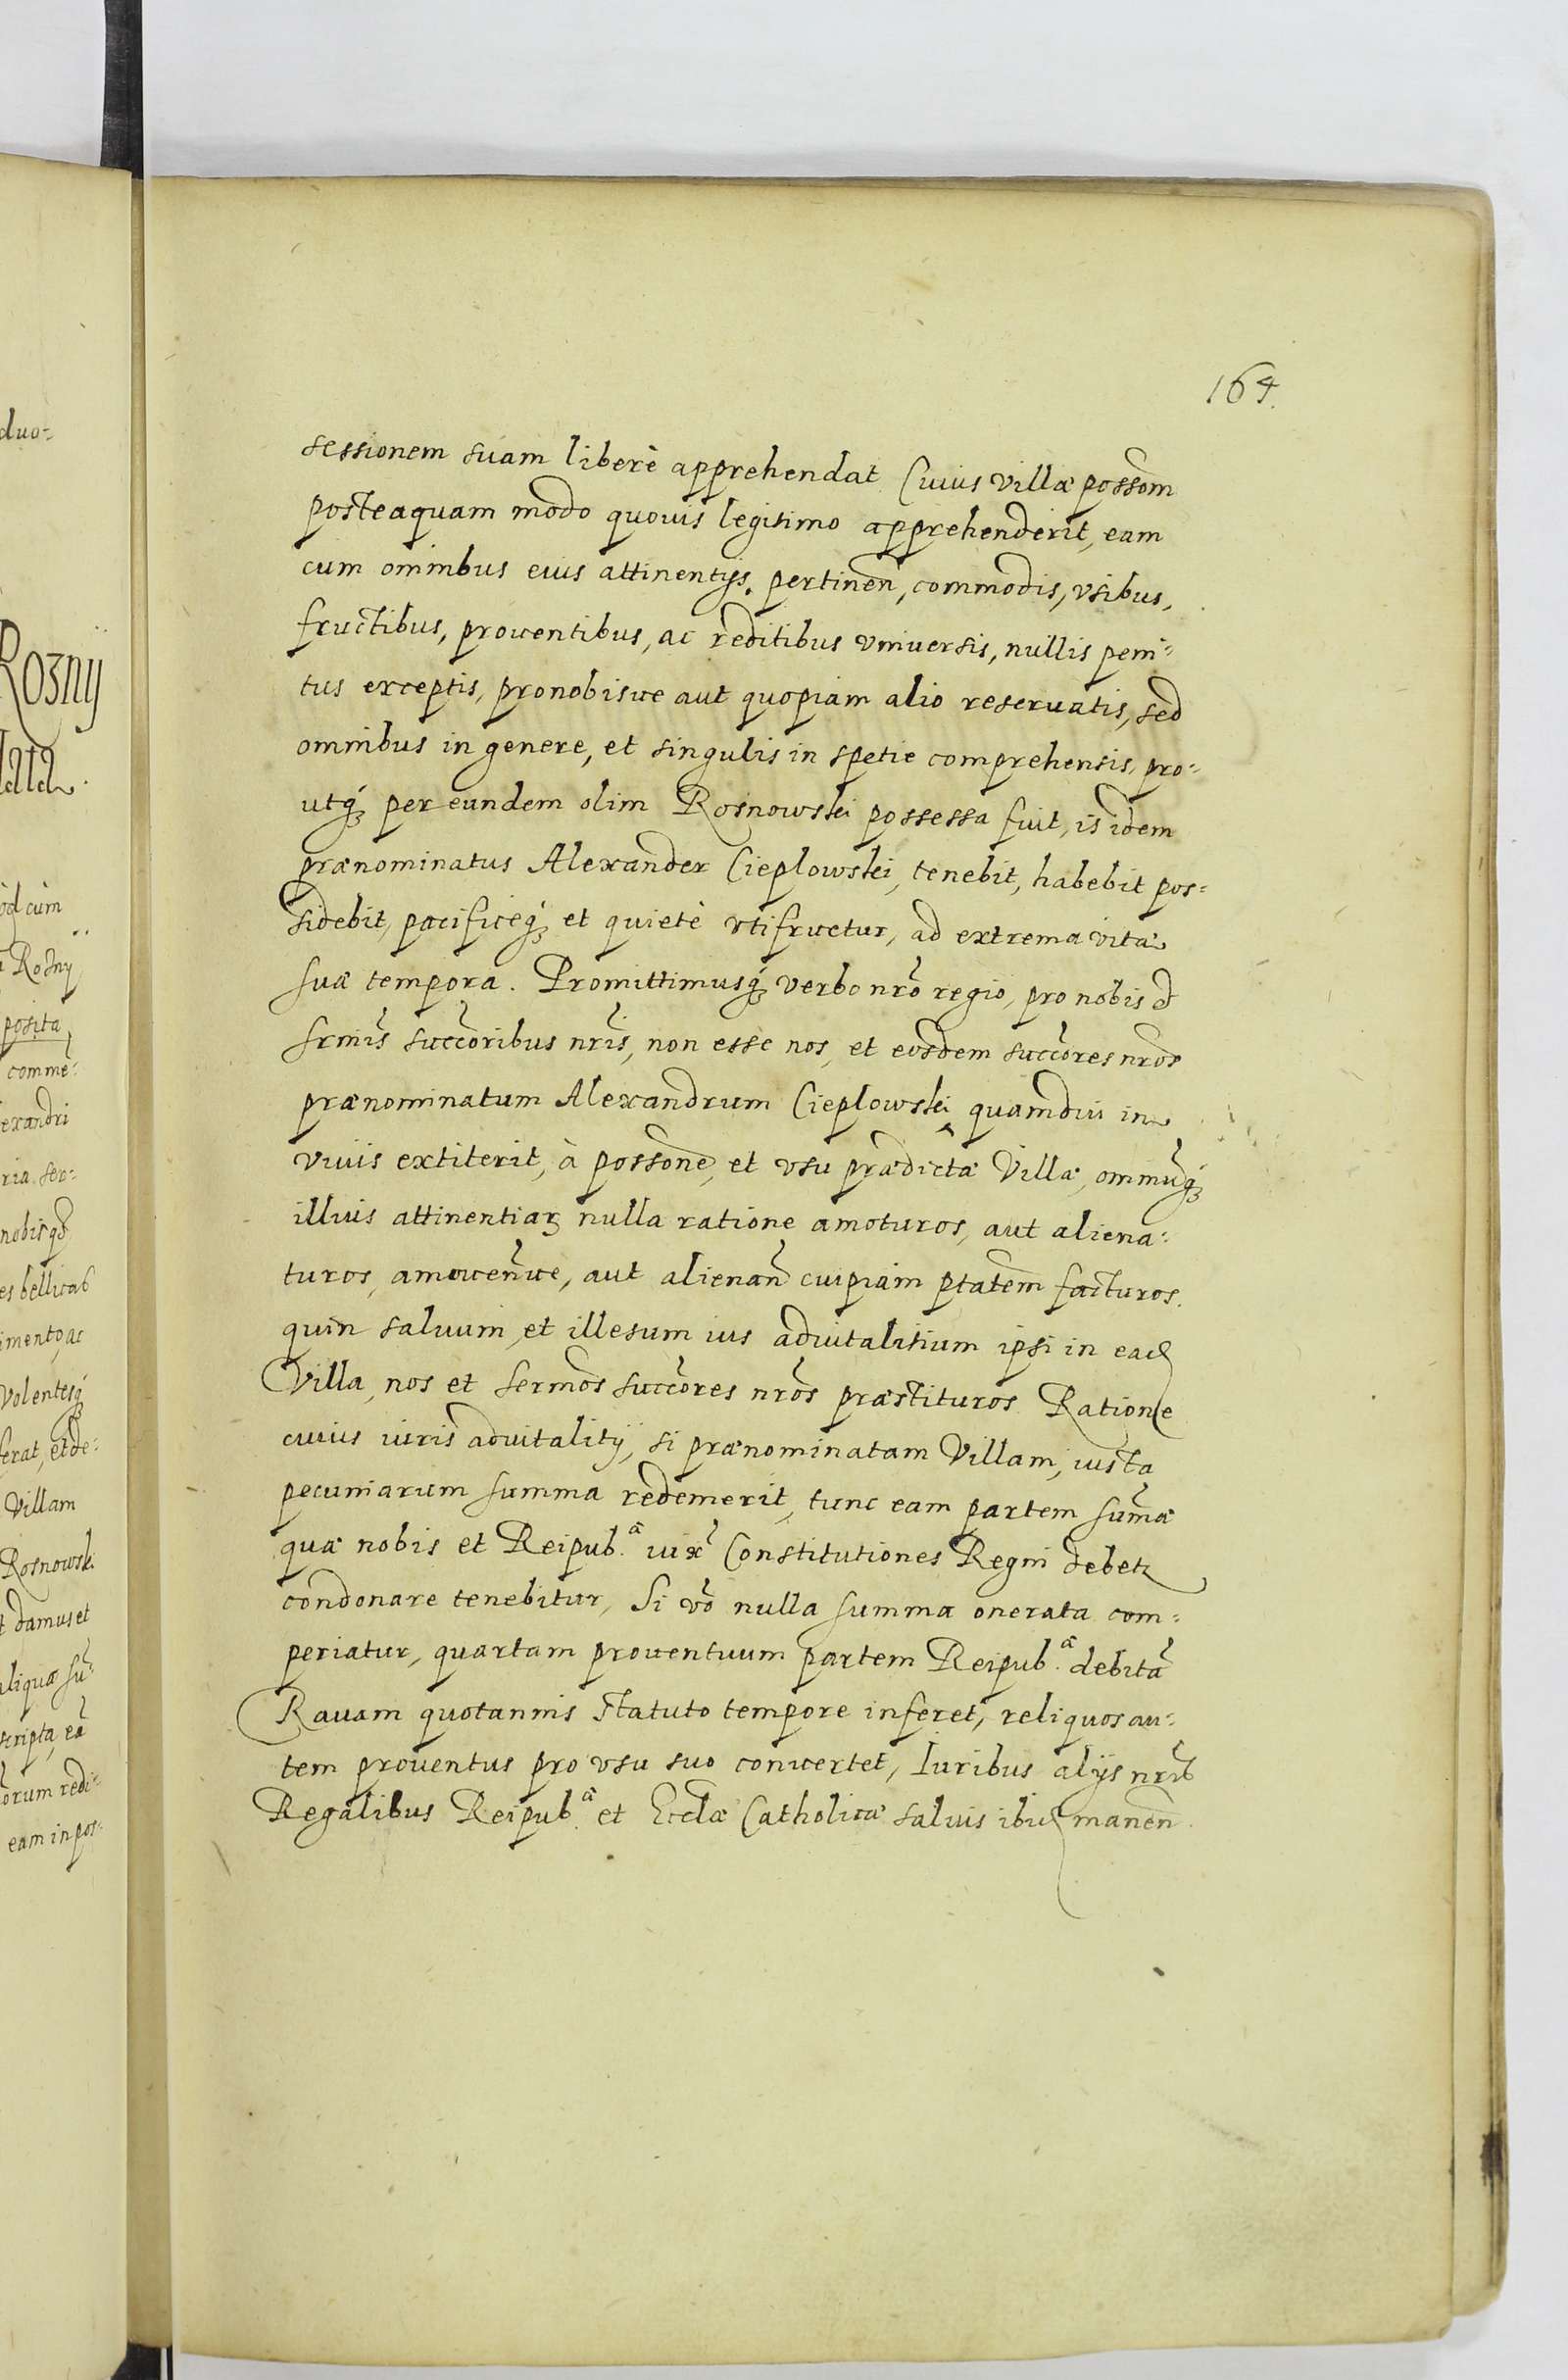 164.
sessionem suam liberè apprehendat Cuius villæ possom̃
posteaquam modo quouis legitimo apprehenderit, eam
cum omnibus eius attinentijs, pertinen̄, commodis, vsibus,
fructibus, prouentibus, ac reditibus vniuersis, nullis peni-
tus exceptis, pro nobisue aut quopiam alio reseruatis, sed
omnibus in genere, et singulis in spetie comprehensis, pro-
utq́ꝫ per eundem olim Rosnowski possessa fuit, is idem
prænominatus Alexander Cieplowski, tenebit, habebit pos-
sidebit, pacificeq́ꝫ et quietè vtifruetur, ad extrema vitæ
suæ tempora. Promittimusq́ꝫ verbo nrõ regio, pro nobis et
srmis̃ succoribus̃ nris̃, non esse nos, et eosdem succores̃ nros̃
prænominatum Alexandrum Cieplowski quamdiu in
viuis extiterit, à possone, et vsu prædictæ Villæ, omniũq́ꝫ
illius attinentiaꝝ nulla ratione amoturos, aut aliena-
turos, amouen̄ue, aut alienan̄ cuipiam ptatem̃ facturos.
quin saluum, et illesum ius aduitalitium ipsi in eaď
Villa, nos et sermos̃ succores̃ nros̃ præstituros Ratione
cuius iuris aduitalitij, si prænominatam Villam, iusta
pecuniarum summa redemerit, tunc eam partem sum̃æ
quæ nobis et Reipub.æ iux̃ Constitutiones Regni debetꝛ
condonare tenebitur, Si võ nulla summa onerata com-
periatur, quartam prouentuum partem Reipub.æ debitã
Rauam quotannis statuto tempore inferet, reliquos au-
tem prouentus pro vsu suo conuertet, Iuribus alijs nris̃
Regalibus Reipub.æ et Ecclæ Catholicæ saluis ibiď manen̄.
duo-
Rozny
lata.
cum
Rosny
posita
commẽ-
exandri
nobisq̃
es bellicas
imento, ac
Volentesq́ꝫ
erat, et de-
Villam
Rosnowski
damus et
aliqua sũ-
scripta, eã
orum redi-
eam in pos-